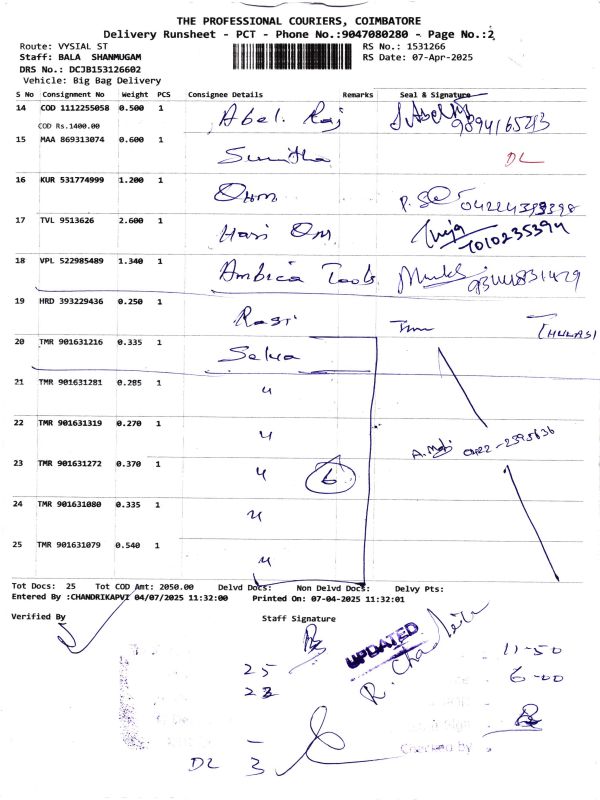 THE PROFESSIONAL COURIERS, COIMBATORE
Delivery Runsheet - PCT - Phone No.:9047080280 - Page No.:2
Route: VYSIAL ST RS No.: 1531266
Staff: BALA SHANMUGAM RS Date: 07-Apr-2025
DRS No.: DCJB153126602
Vehicle: Big Bag Delivery
S No Consignment No Weight PCS Consignee Details Remarks Seal & Signature
14 COD 1112255058 0.500 1 Abel. Raj
COD Rs.1400.00
15 MAA 869313074 0.600 1 Sunitha DL
16 KUR 531774999 1.200 1 Ohm
17 TVL 9513626 2.600 1 Hari Om 7010235394
18 VPL 522985489 1.340 1 Ambica Tools
19 HRD 393229436 0.250 1 Rasi THULASI
20 TMR 901631216 0.335 1 Selva
21 TMR 901631281 0.285 1 "
22 TMR 901631319 0.270 1 "
0422-2395636
23 TMR 901631272 0.370 1 " 6
24 TMR 901631080 0.335 1 "
25 TMR 901631079 0.540 1 "
Tot Docs: 25 Tot COD Amt: 2050.00 Delvd Docs: Non Delvd Docs: Delvy Pts:
Entered By :CHANDRIKAPVI 04/07/2025 11:32:00 Printed On: 07-04-2025 11:32:01
Verified By Staff Signature
UPDATED
25 11-50
23 6-00
Checked by
DL 3